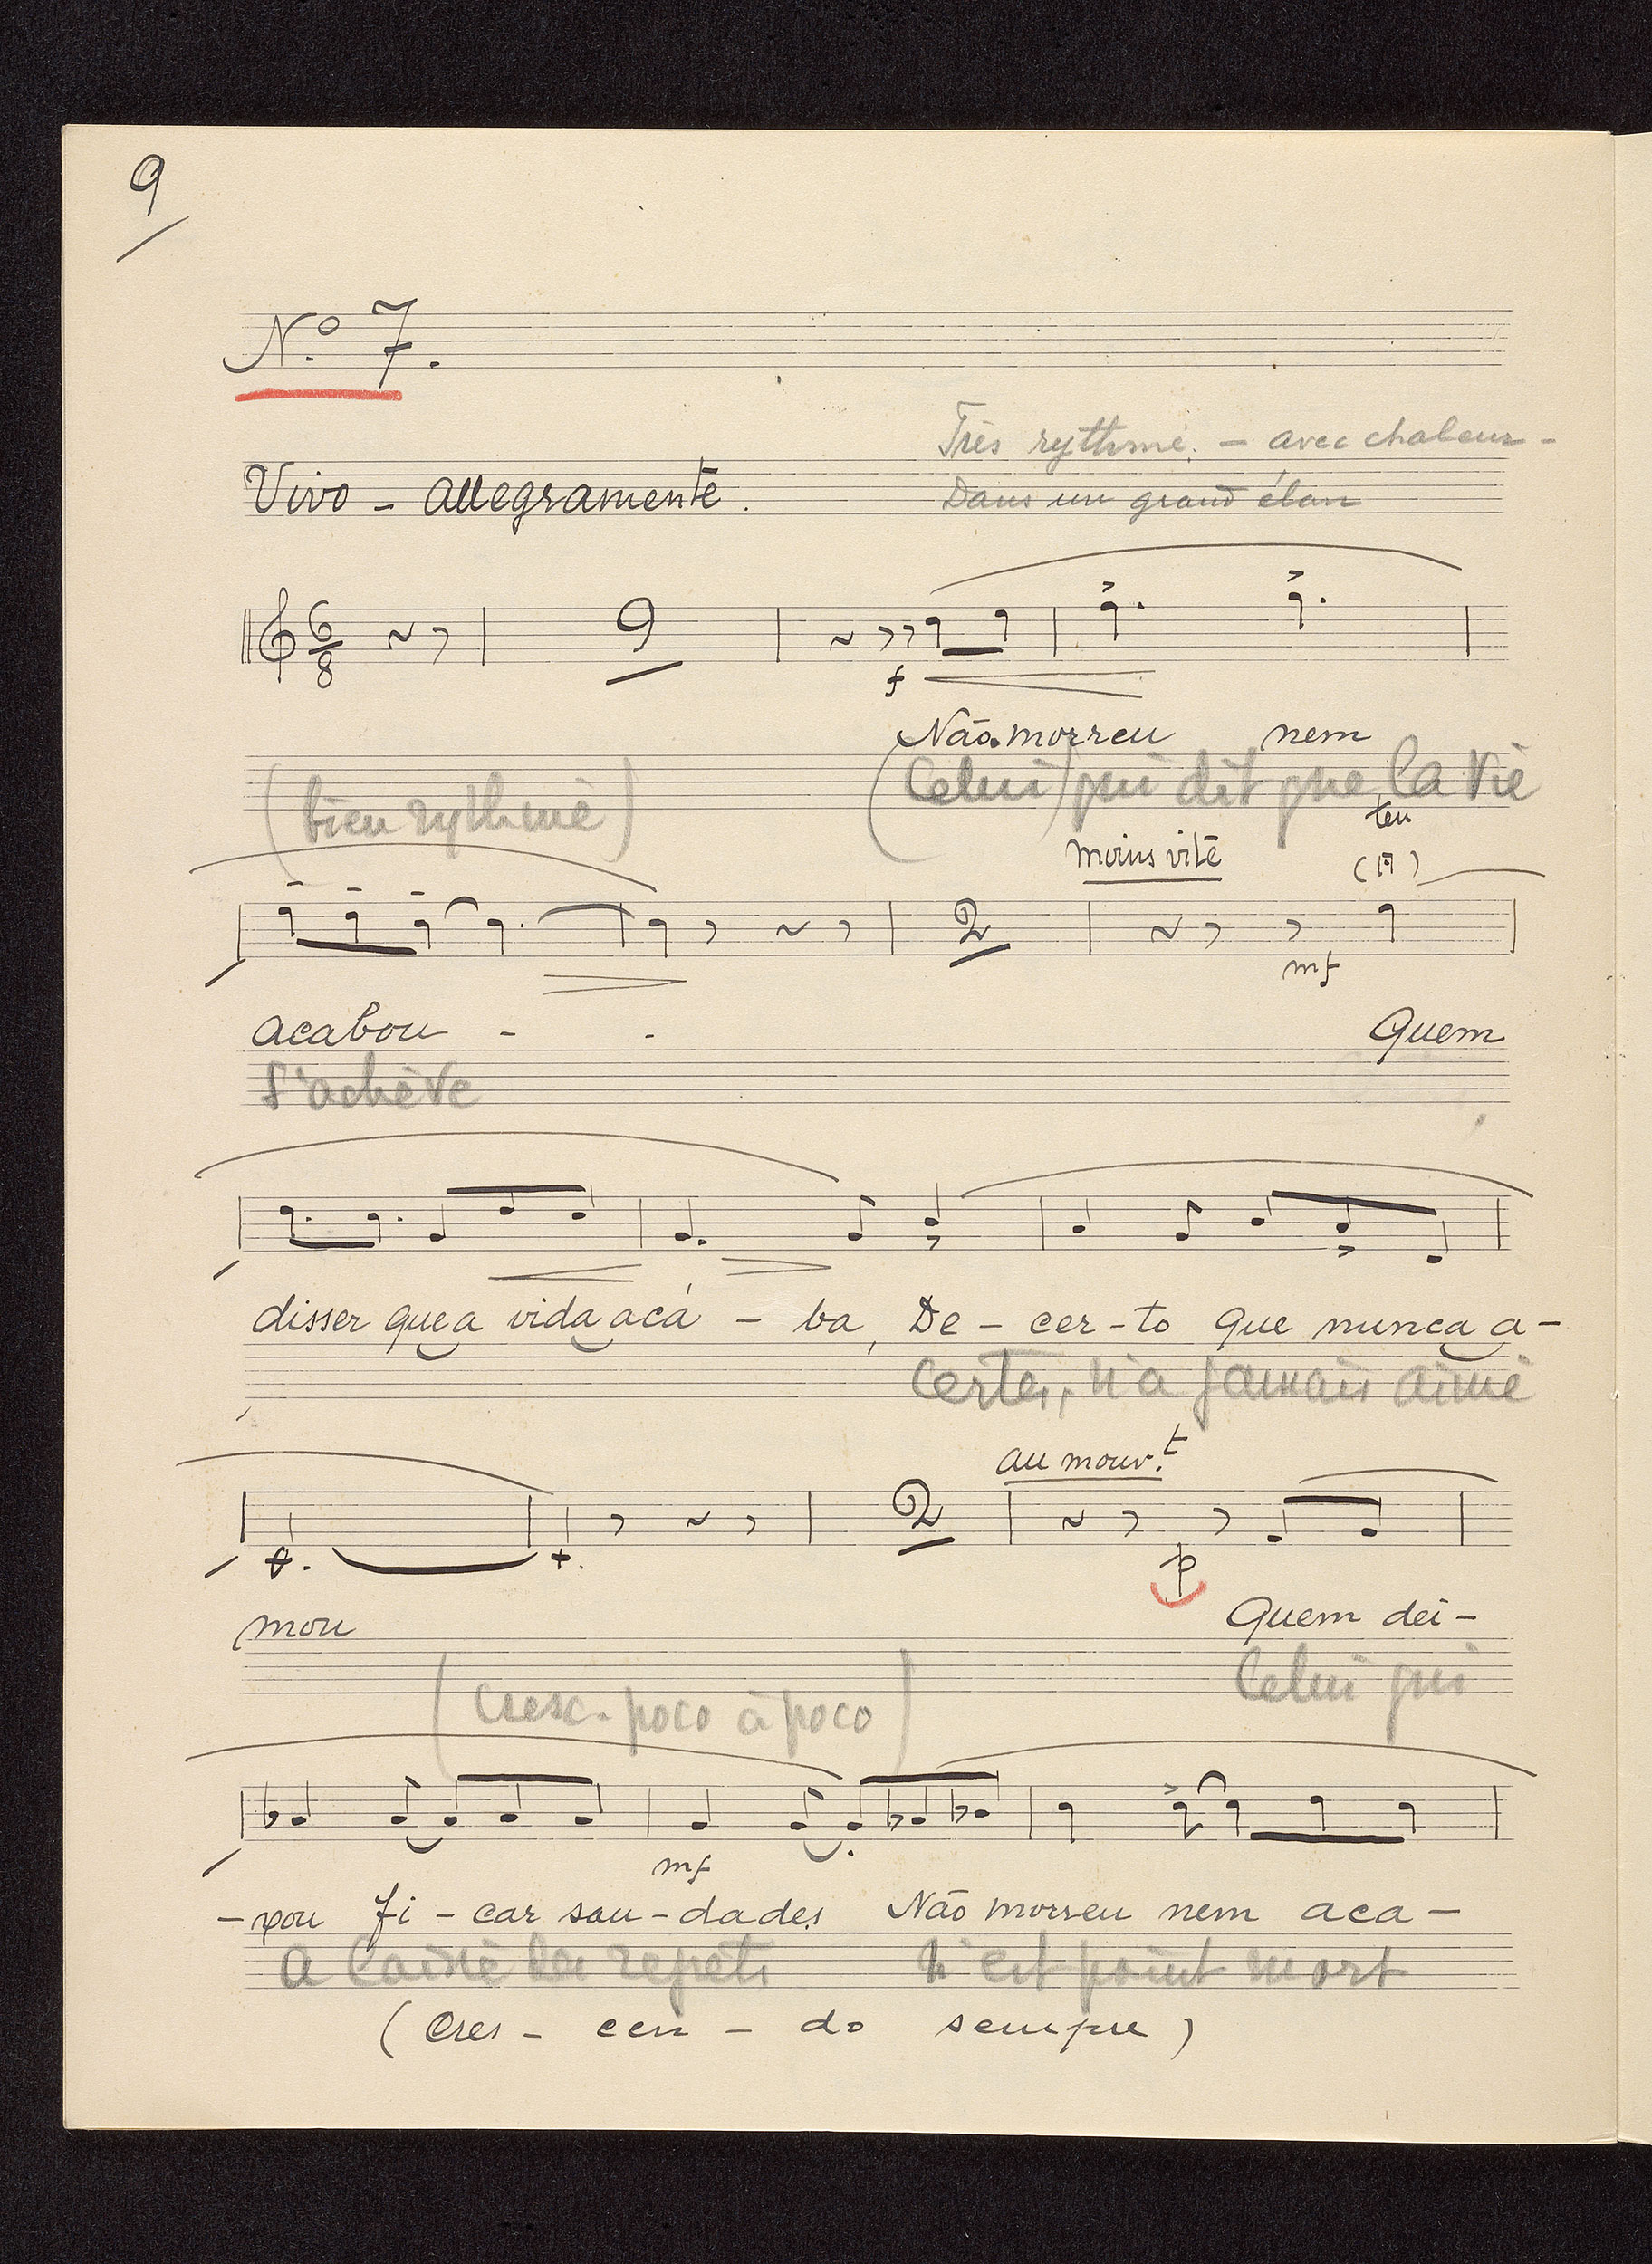 9
N.º 7.
Très rythmé. - avec chaleur -
Vivo - Allegramente.
Dans un grand élan
6
8
9
f
Não morreu nem
(bien rythmé) (Celui) qui dit que la vie
ten
moins vite
2
mf
acabou - - Quem
s'achève
disser que a vida acá - ba, De - cer - to que nunca a -
Certes, n'a jamais aimé
au mouv.t
2
p
mou Quem dei -
Celui qui
(cresc. poco à poco)
mf
- xou fi - car sau - dades Não morreu nem aca -
a laissé des regrets N'est point mort
(Cres - cen - do sempre)